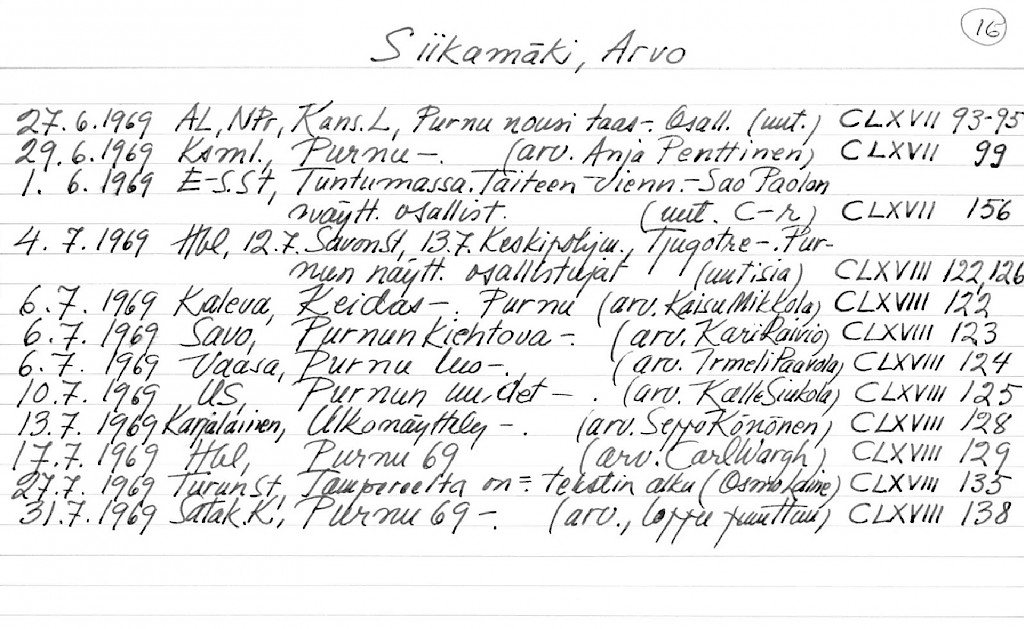 16
Siikamäki, Arvo
27.6.1969 AL, NPr, Kans.L, Purnu nousi taas-. Osall. (uut.) CLXVII 93-95
29.6.1969 Ksml., Purnu-. (arv. Anja Penttinen) CLXVII 99
1. 6. 1969 E-S.St, Tuntumassa. Taiteen vienn.-Sao Paolon
näytt. osallist. (uut. C-r) CLXVII 156
4. 7. 1969 Hbl, 12.7. SavonSt, 13.7. Keskipohjm., Tjugotre-. Pur-
nun näytt. osallistujat (uutisia) CLXVIII 122,126
6.7. 1969 Kaleva, Keidas-. Purnu (arv. Kaisu Mikkola) CLXVIII 122
6.7. 1969 Savo, Purnun kiehtova-. (arv. Kari Raivio) CLXVIII 123
6.7. 1969 Vaasa, Purnu luo-. (arv. Irmeli Paavola) CLXVIII 124
10.7. 1969 US, Purnun uudet-. (arv. Kalle Siukola) CLXVIII 125
13.7. 1969 Karjalainen, Ulkonäyttely-. (arv. Seppo Könönen) CLXVIII 128
17.7. 1969 Hbl, Purnu 69 (arv. Carl Wargh) CLXVIII 129
27.7. 1969 TurunSt, Tampereelta on= tekstin alku (Osmo Laine) CLXVIII 135
31.7. 1969 Satak.K, Purnu 69-. (arv., loppu puuttuu) CLXVIII 138